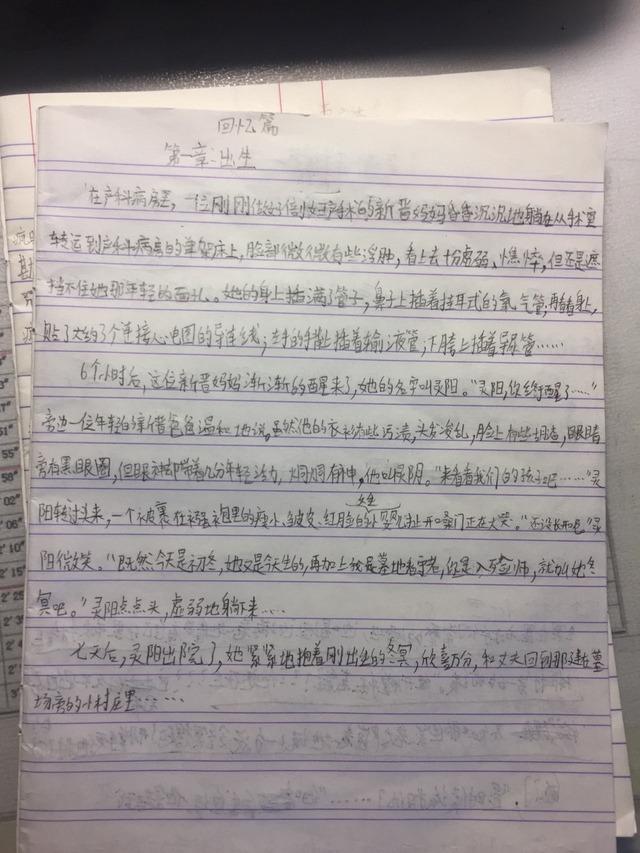 回忆篇
第一章:出生
在产科病房里,一位刚刚做好剖妇产手术的新晋妈妈昏昏沉沉地躺在从手术室
转运到产科病房的单架床上,脸部微微有些浮肿,看上去十分虚弱、憔悴,但还是遮
挡不住她那年轻的面孔。她的身上插满了管子,鼻子上插着挂耳式的氧气管;再看看身上,
贴了大约了个连接心电图的导连线;左手的手背上插着输液管;下胯上插着导尿管……
6个小时后,这位新晋妈妈渐渐的醒来了,她的名字叫灵阳。“灵阳,你终于醒了……”
旁边一位年轻的新晋爸爸温和地说。虽然他的衣衫有些污渍,头发凌乱,脸上有些胡渣,眼睛
旁有黑眼圈,但眼神却喘着几分年轻活力,炯炯有神,他叫灵阴。“来看看我们的孩子吧……”灵
阳转过头来,一个被裹在襁褓里的瘦小、皱皮、红脸的女婴儿扯开嗓门正在大哭。“还没长开呢”灵
阳微笑。“既然今天是初冬,她又是今天生的,再加上我是墓地看守者,你是入殓师,就叫她冬
冥吧。”灵阳点点头,虚弱地躺下来……
七天后,灵阳出院了,她紧紧地抱着刚出生的冬冥,欣喜万分,和丈夫回到那建在墓
场旁的小村庄里……